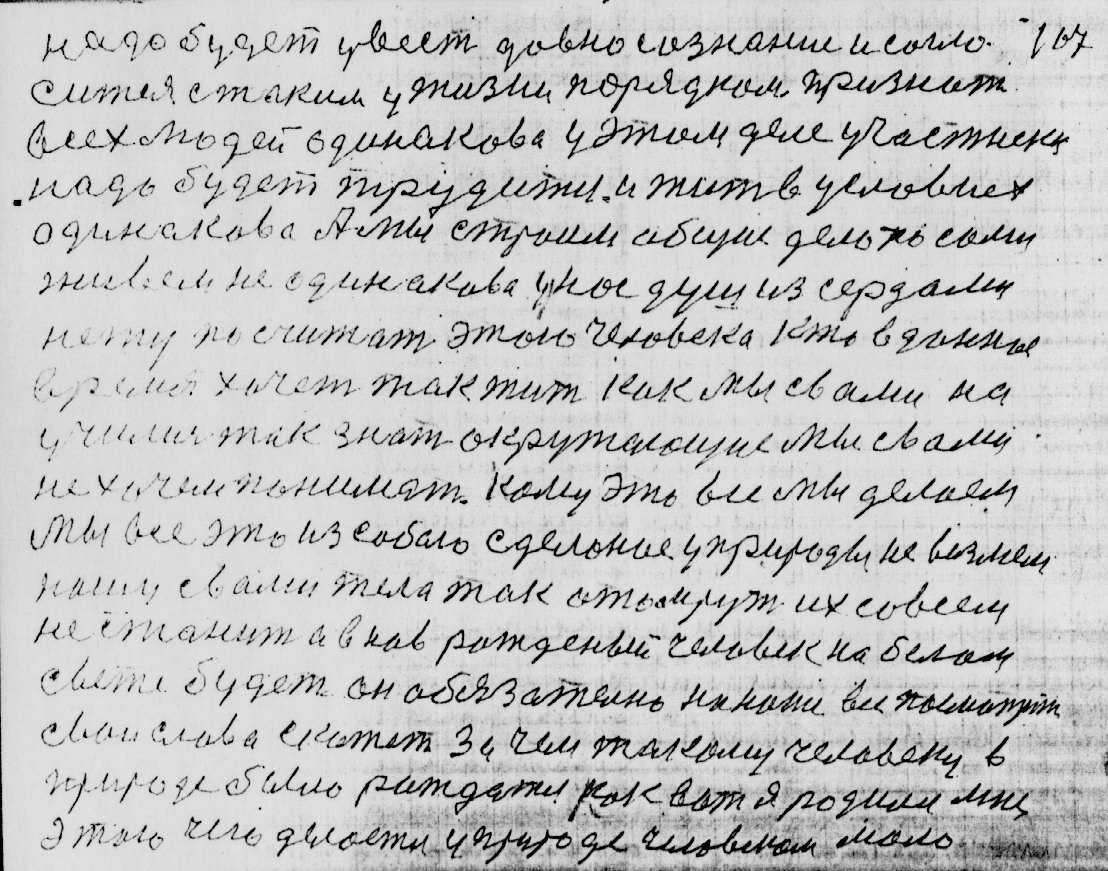 надо будет увест давно сознание и согло- 107
ситея с таким у жизни порядком признат
всех людей одинакова у этом деле участники
надь будет трудити и жит в условиех
одинакова А мы строим общие дело но сами
живем не одинакова у нас душ из сердами
нету посчитат этого человека кто в данное
время хочет так жит как мы с вами на
училис так знат окружающие мы с вами
не хочем понимат. Кому это все мы делаем
мы все это из собою сделоное у природы не возмем
наши с вами тела так отомрут их совсем
не станит а внов рожденый человек на белом
свети будет он обязателно на наши все посмотрит
свои слова скажет За чем такому человеку в
природе было рождати как вот я родили мне
этого чего делоети у природе человеком мало